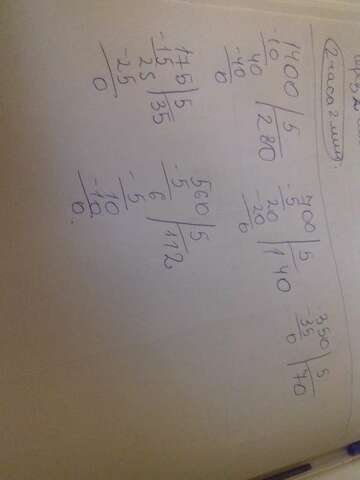 2 часа 2 мин.
1400 | 5
-10 | 280
40
-40
0
700 | 5
-5 | 140
20
-20
0
350 | 5
-35 | 70
0
175 | 5
-15 | 35
25
-25
0
560 | 5
-5 | 112
6
-5
10
-10
0